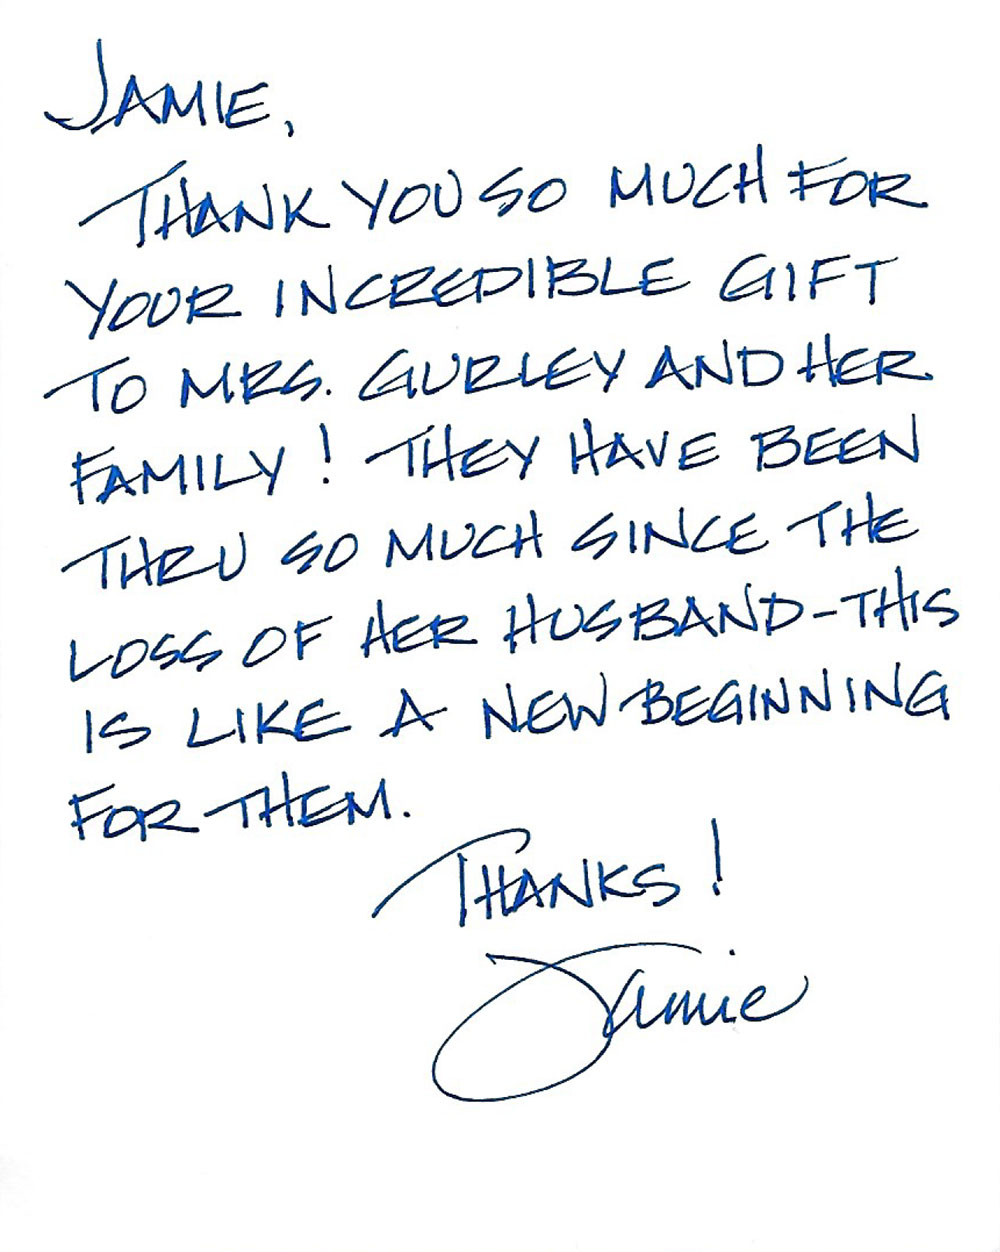 JAMIE,
THANK YOU SO MUCH FOR
YOUR INCREDIBLE GIFT
TO MRS. GURLEY AND HER
FAMILY! THEY HAVE BEEN
THRU SO MUCH SINCE THE
LOSS OF HER HUSBAND-THIS
IS LIKE A NEW BEGINNING
FOR THEM.
THANKS!
Jamie